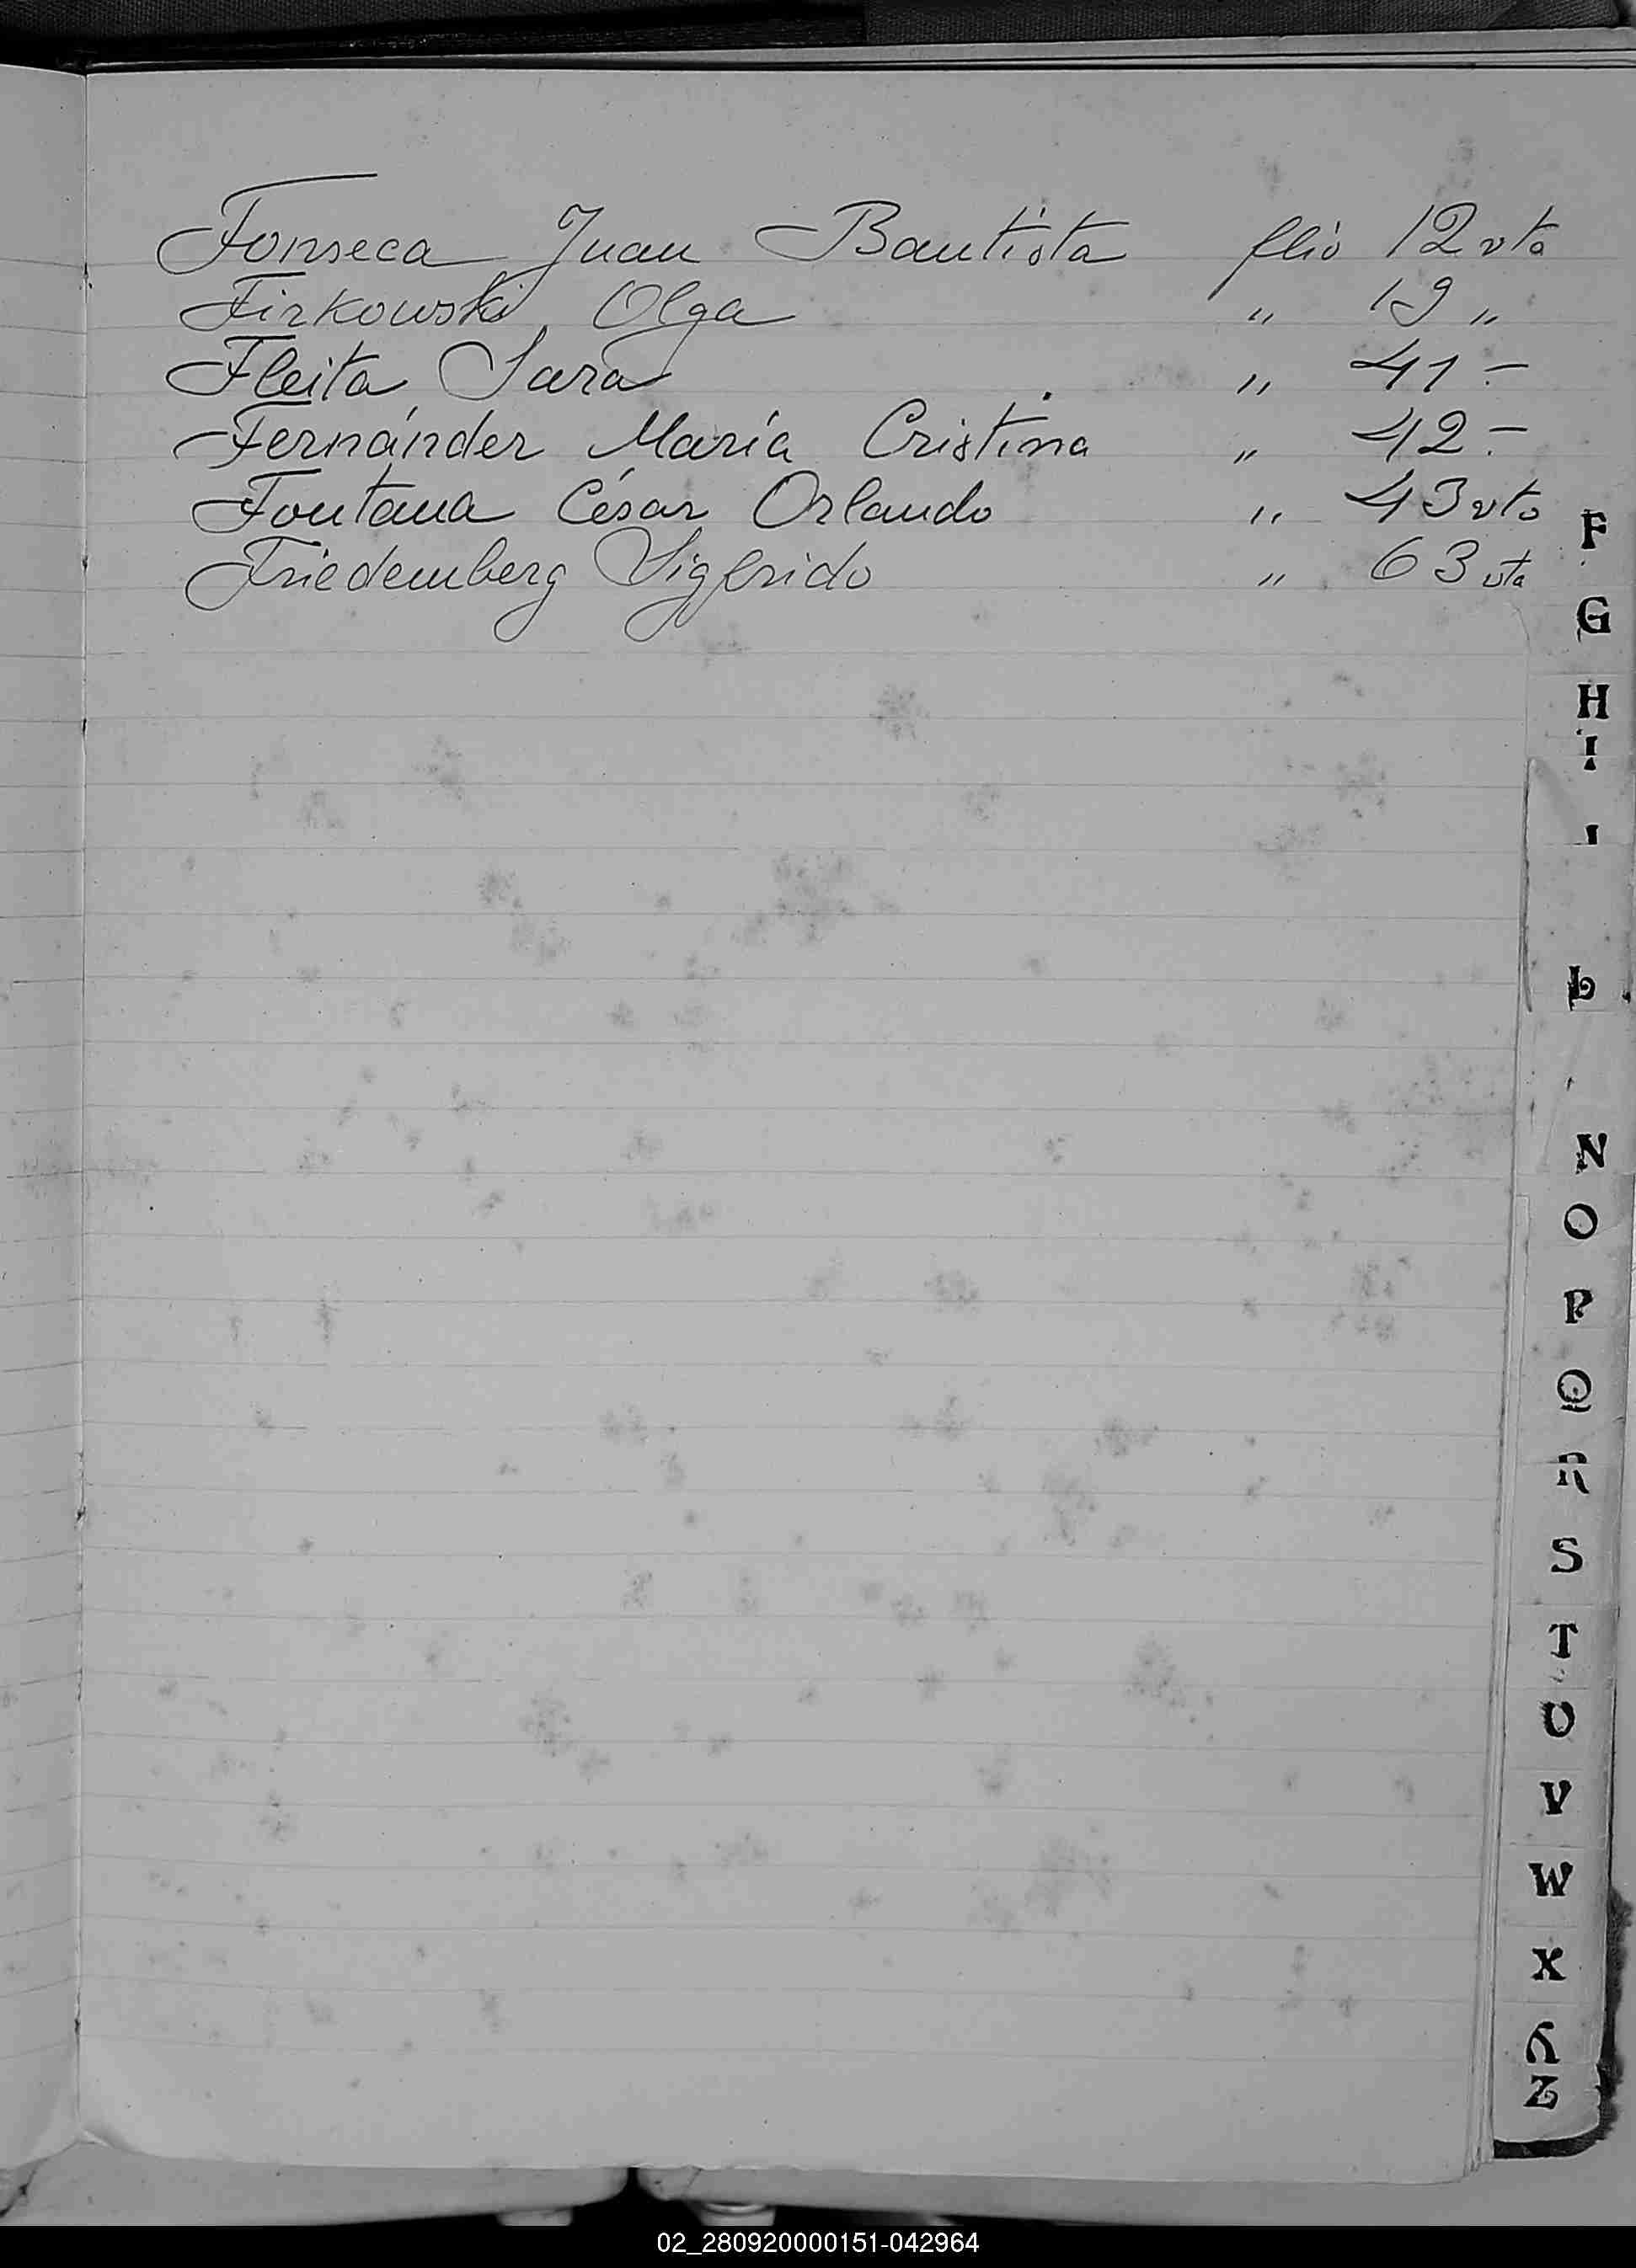 Fonseca Juan Bautista flio 12 vta
Firkowski, Olga " 19 "
Fleita Sara " 41 -
Fernánder María Cristina " 42 -
Fontana César Orlando " 43 vta
Friedemberg Sigfrido " 63 vta
F
G
H
I
L
N
O
P
Q
R
S
T
U
V
W
X
Y
Z
02_280920000151-042964